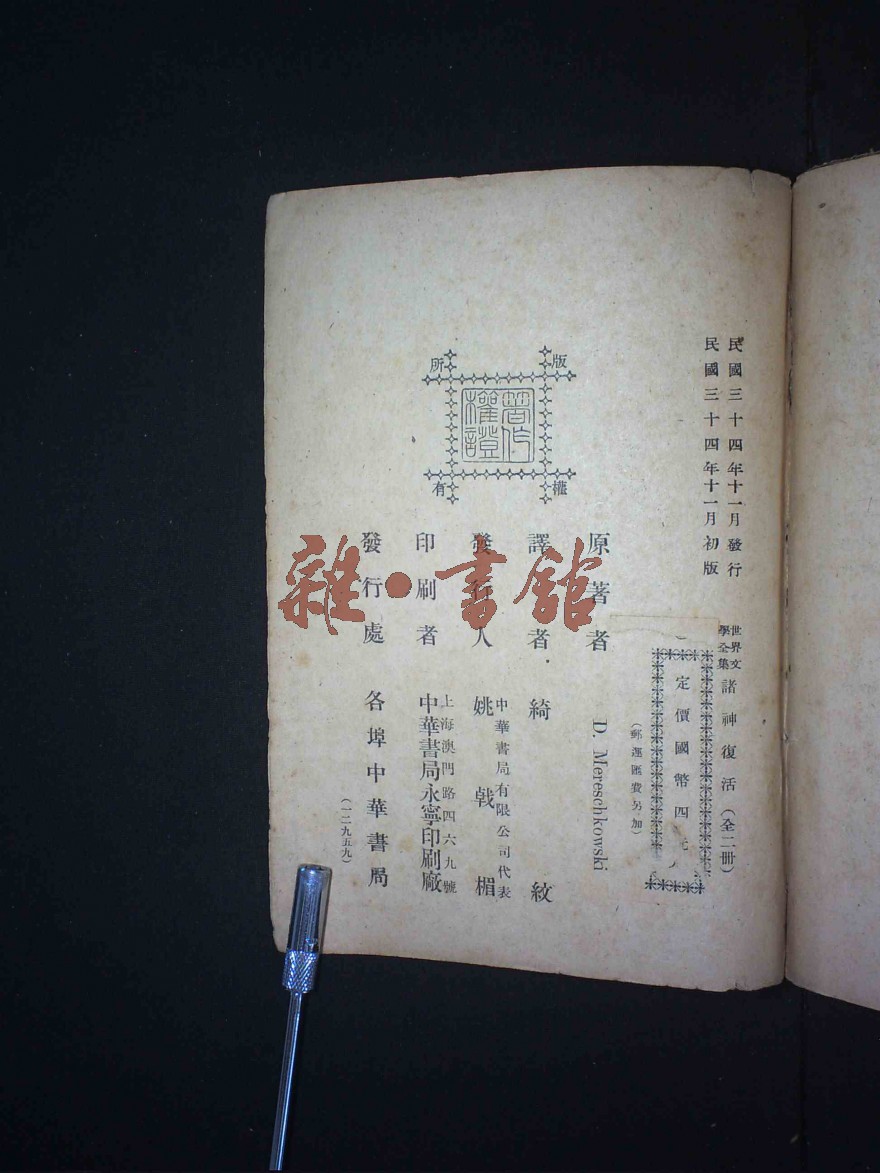 民國三十四年十一月發行
民國三十四年十一月初版
世界文學全集 諸神復活（全二冊）
定價國幣四元
（郵運匯費另加）
原著者 D. Mereschkowski
譯者 綺紋
發行人 中華書局有限公司代表 姚戟楣
印刷者 上海澳門路四六九號 中華書局永寧印刷廠
發行處 各埠中華書局
（一二九五九）
版權所有
著作權證
雜·書館